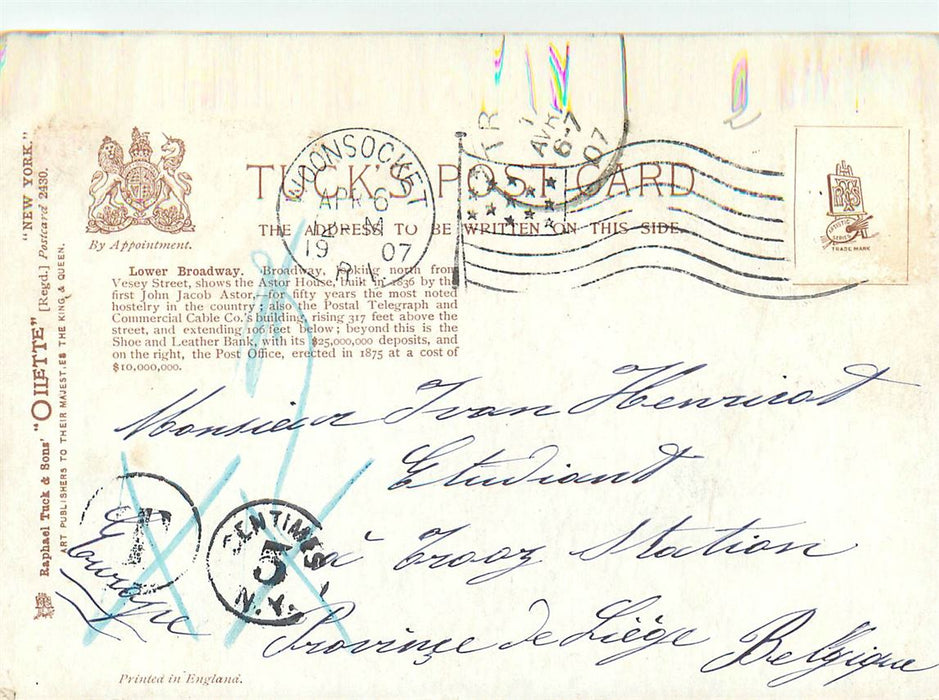 "NEW YORK."
Raphael Tuck & Sons' "OILETTE" [Regd.] Postcard 2430.
ART PUBLISHERS TO THEIR MAJESTIES THE KING & QUEEN.
By Appointment.
TUCK'S POST CARD
THE ADDRESS TO BE WRITTEN ON THIS SIDE.
WOONSOCKET
APR 6
M
19 07
R.I.
AVR
6-7
07
TRADE MARK
Lower Broadway. Broadway, looking north from
Vesey Street, shows the Astor House, built in 1836 by the
first John Jacob Astor,—for fifty years the most noted
hostelry in the country; also the Postal Telegraph and
Commercial Cable Co.'s building, rising 317 feet above the
street, and extending 106 feet below; beyond this is the
Shoe and Leather Bank, with its $25,000,000 deposits, and
on the right, the Post Office, erected in 1875 at a cost of
$10,000,000.
Monsieur Ivan Henricot
Etudiant
à Trooz Station
Province de Liège Belgique
Europe
T
CENTIMES
5
N.Y.
Printed in England.